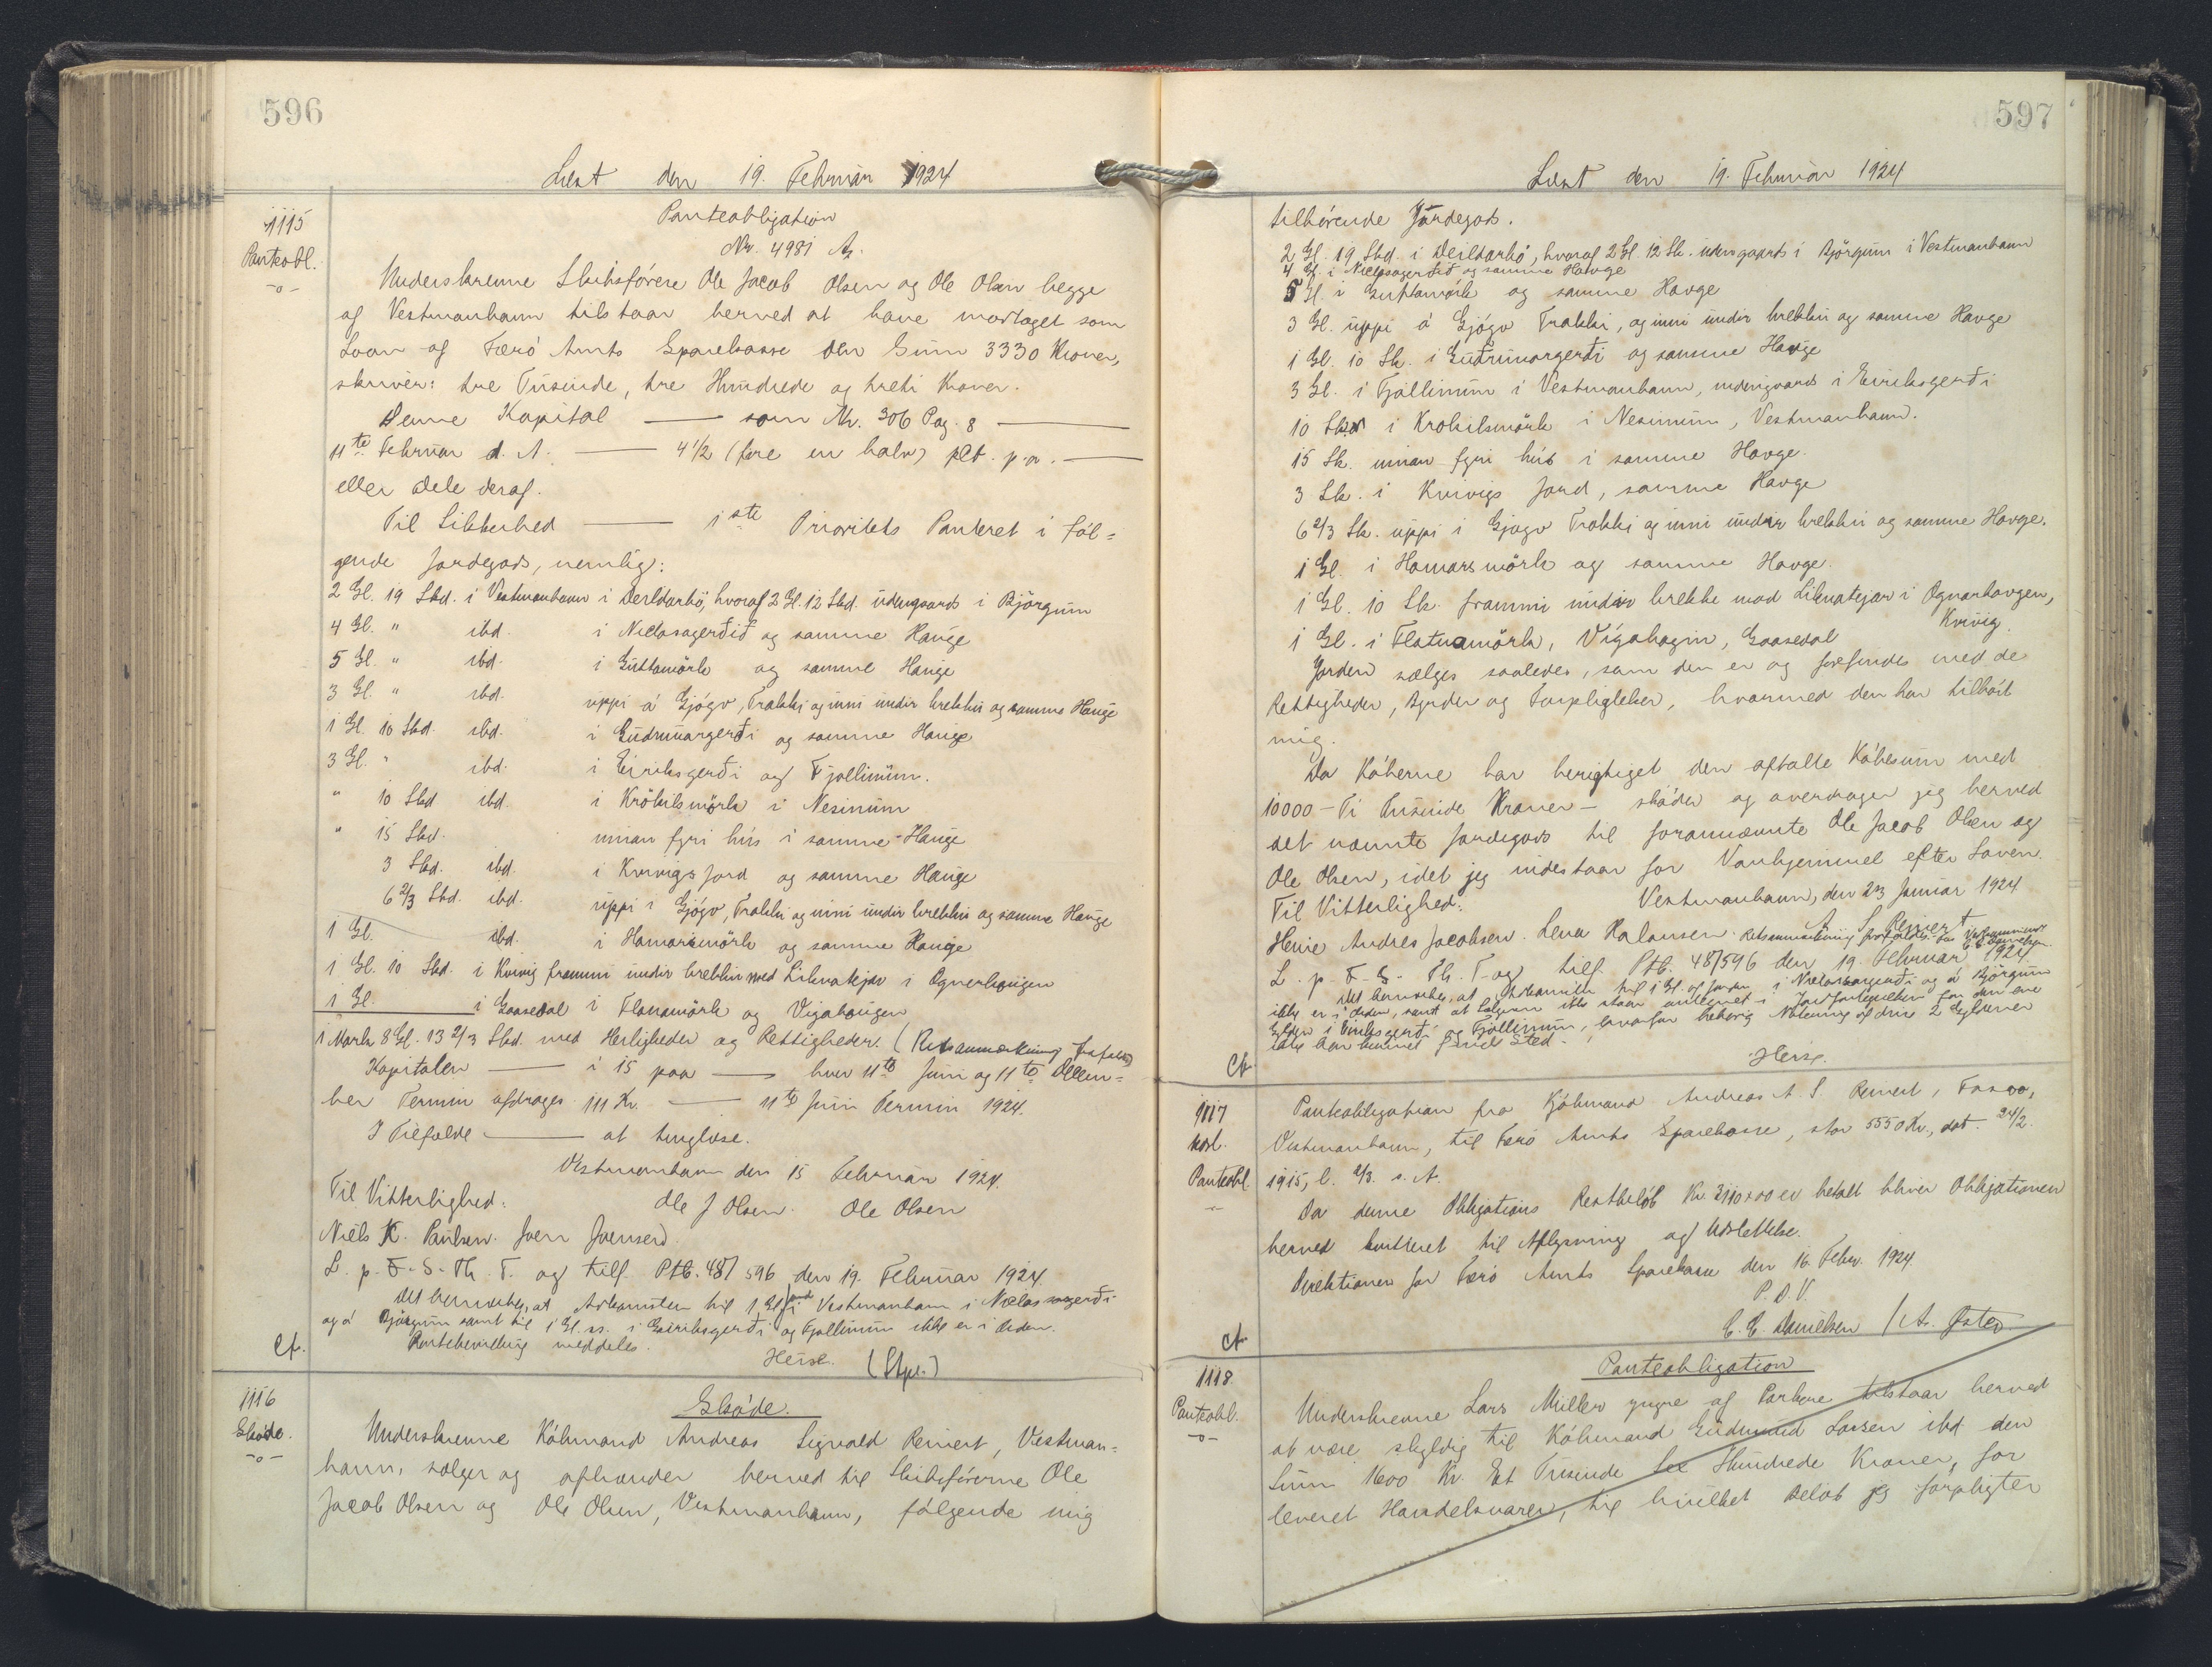 596
Læst den 19. Februar 1924
1115
Panteobl.
-o-
Panteobligation
Nr. 4981 A.
Underskrevne Skibsförere Ole Jacob Olsen og Ole Olsen begge
af Vestmanhavn tilstaar herved at have modtaget som
Laan af Færö Amts Sparekasse den Sum 3330 Kroner,
skriver: tre Tusinde, tre Hundrede og treti Kroner.
Denne Kapital — som Nr. 306 Pag. 8 —
11te Februar d. A. — 4 1/2 (fire en halv) pCt. p.a. —
eller Dele deraf.
Til Sikkerhed — 1ste Prioritets Panteret i föl=
gende Jordegods, nemlig:
2 Gl. 19 Skd. i Vestmanhavn i Deildarbö, hvoraf 2 Gl. 12 Skd. udengaards i Björgum
4 Gl. " ibd. i Niclasagerđiđ og samme Hauge
5 Gl. " ibd. i Guttamörk og samme Hauge
3 Gl. " ibd. uppi á Gjógv, Trakki og inni undir brekkù og samme Hauge
1 Gl. 10 Skd. ibd. i Gudrunargerđi og samme Hauge
3 Gl. " ibd. i Eiriksgerđi og Fjøllinum.
" 10 Skd ibd. i Krókilsmörk i Nesinum
" 15 Skd. innan fyri hús i samme Hauge
3 Skd. ibd. i Kvivigs Jord og samme Hauge
6 2/3 Skd. ibd. uppi i Gjógv, Trakki og inni undir brekkù og samme Hauge
1 Gl. ibd. i Hamarsmörk og samme Hauge
1 Gl. 10 Skd. i Kvivig frammi undir brekkù med Liknatejar i Ognarhaugen
1 Gl. i Gaasedal i Flatnamörk og Vigahaugen
1 Mark 8 Gl. 13 2/3 Skd. med Herligheder og Rettigheder. (Retsanmærkning frafaldes)
Kapitalen — i 15 paa — hver 11te Juni og 11te Decem=
ber Termin afdrages 111 Kr. — 11te Juni Termin 1924.
I Tilfælde — at tinglæse.
Vestmanhavn den 15 Februar 1924.
Til Vitterlighed: Ole J Olsen. Ole Olsen
Niels K. Paulsen. Joen Joensen.
L. p. F. S. Th. T. og tilf. Ptb. 48/596 den 19. Februar 1924.
Det bemærkes, at Adkomsten til 1 Gl. Jord i Vestmanhavn i Niclasagerđi
og á Björgum samt til 1 Gl. ss. i Eiriksgerđi og Fjøllinum ikke er i Orden.
Rentebevilling meddeles.
Ct. Heise. (Stpl.)
1116
Sköde.
-o-
Sköde.
Underskrevne Köbmand Andreas Sigvald Reinert, Vestman=
havn, sælger og afhænder herved til Skibsförerne Ole
Jacob Olsen og Ole Olsen, Vestmanhavn, følgende mig
597
Læst den 19. Februar 1924
tilhörende Jordegods.
2 Gl. 19 Skd. i Deildarbö, hvoraf 2 Gl. 12 Sk. udengaards i Björgum i Vestmanhavn
4 Gl. i Niclasagerđiđ og samme Havge
5 Gl. i Guttamörk og samme Havge
3 Gl. uppi á Gjógv Trakki, og inni undir brekku og samme Havge
1 Gl. 10 Sk. i Guđrunargerđi og samme Havge
3 Gl. i Fjøllinum i Vestmanhavn, udengaards i Eiriksgerđi
10 Sk. i Krokilsmörk i Nesinum, Vestmanhavn.
15 Sk. innan fyri hús i samme Havge.
3 Sk. i Kvivigs Jord, samme Havge
6 2/3 Sk. uppi i Gjógv Trakki og inni undir brekku og samme Havge.
1 Gl. i Hamarsmörk og samme Havge.
1 Gl. 10 Sk. frammi undir brekke med Liknatejar i Ognarhavgen,
Kvivig.
1 Gl. i Flatnamörk, Vígahagin, Gaasedal
Jorden sælges saaledes, som den er og forefindes med de
Rettigheder, Byrder og Forpligtelser, hvormed den har tilhört
mig.
Da Köberne har berigtiget den aftalte Köbesum med
10000 – Ti Tusinde Kroner – sköder og overdrager jeg herved
det nævnte Jordegods til forannævnte Ole Jacob Olsen og
Ole Olsen, idet jeg indestaar for Vanhjemmel efter Loven.
Vestmanhavn, den 23 Januar 1924
Til Vitterlighed: A S Reinert
Heine Andreas Jacobsen. Lena Kalansen. Retsanmærkning frafaldes
L. p. F. S. Th. T. og tilf. Ptb. 48/596 den 19. Februar 1924
Det bemærkes, at Adkomsten til 1 Gl. af Jorden i Niclasagerđi og á Björgum
ikke er i Orden, samt at Sælgeren ikke staar antegnet i Jordfortegnelsen for den ene
Gylden i Eiriksgerđi og Fjøllinum, hvorfor behörig Notering af disse 2 Gyldener
ikke har kunnet finde Sted.
Ct Heise.
1117
Panteobl.
Panteobligation fra Kjöbmand Andreas A. S. Reinert,
Vestmanhavn, til Færö Amts Sparekasse, stor 5550 Kr., dat. 24/2.
1915, l. 2/3. s. A.
Da denne Obligations Restbelöb Kr. 3110x00 er betalt bliver Obligationen
herved kvitteret til Aflysning og Udslettelse.
Direktionen for Færö Amts Sparekasse den 16. Febr. 1924.
P. D. V.
C. C. Danielsen / A.
Ct
1118
Panteobl.
-o-
Panteobligation
Underskrevne Lars Müller yngre af Porkere tilstaar herved
at være skyldig til Köbmand Gudmund Larsen ibd den
Sum 1600 Kr. Et Tusinde sex Hundrede Kroner, for
leveret Handelsvarer, til hvilket Belöb jeg forpligter